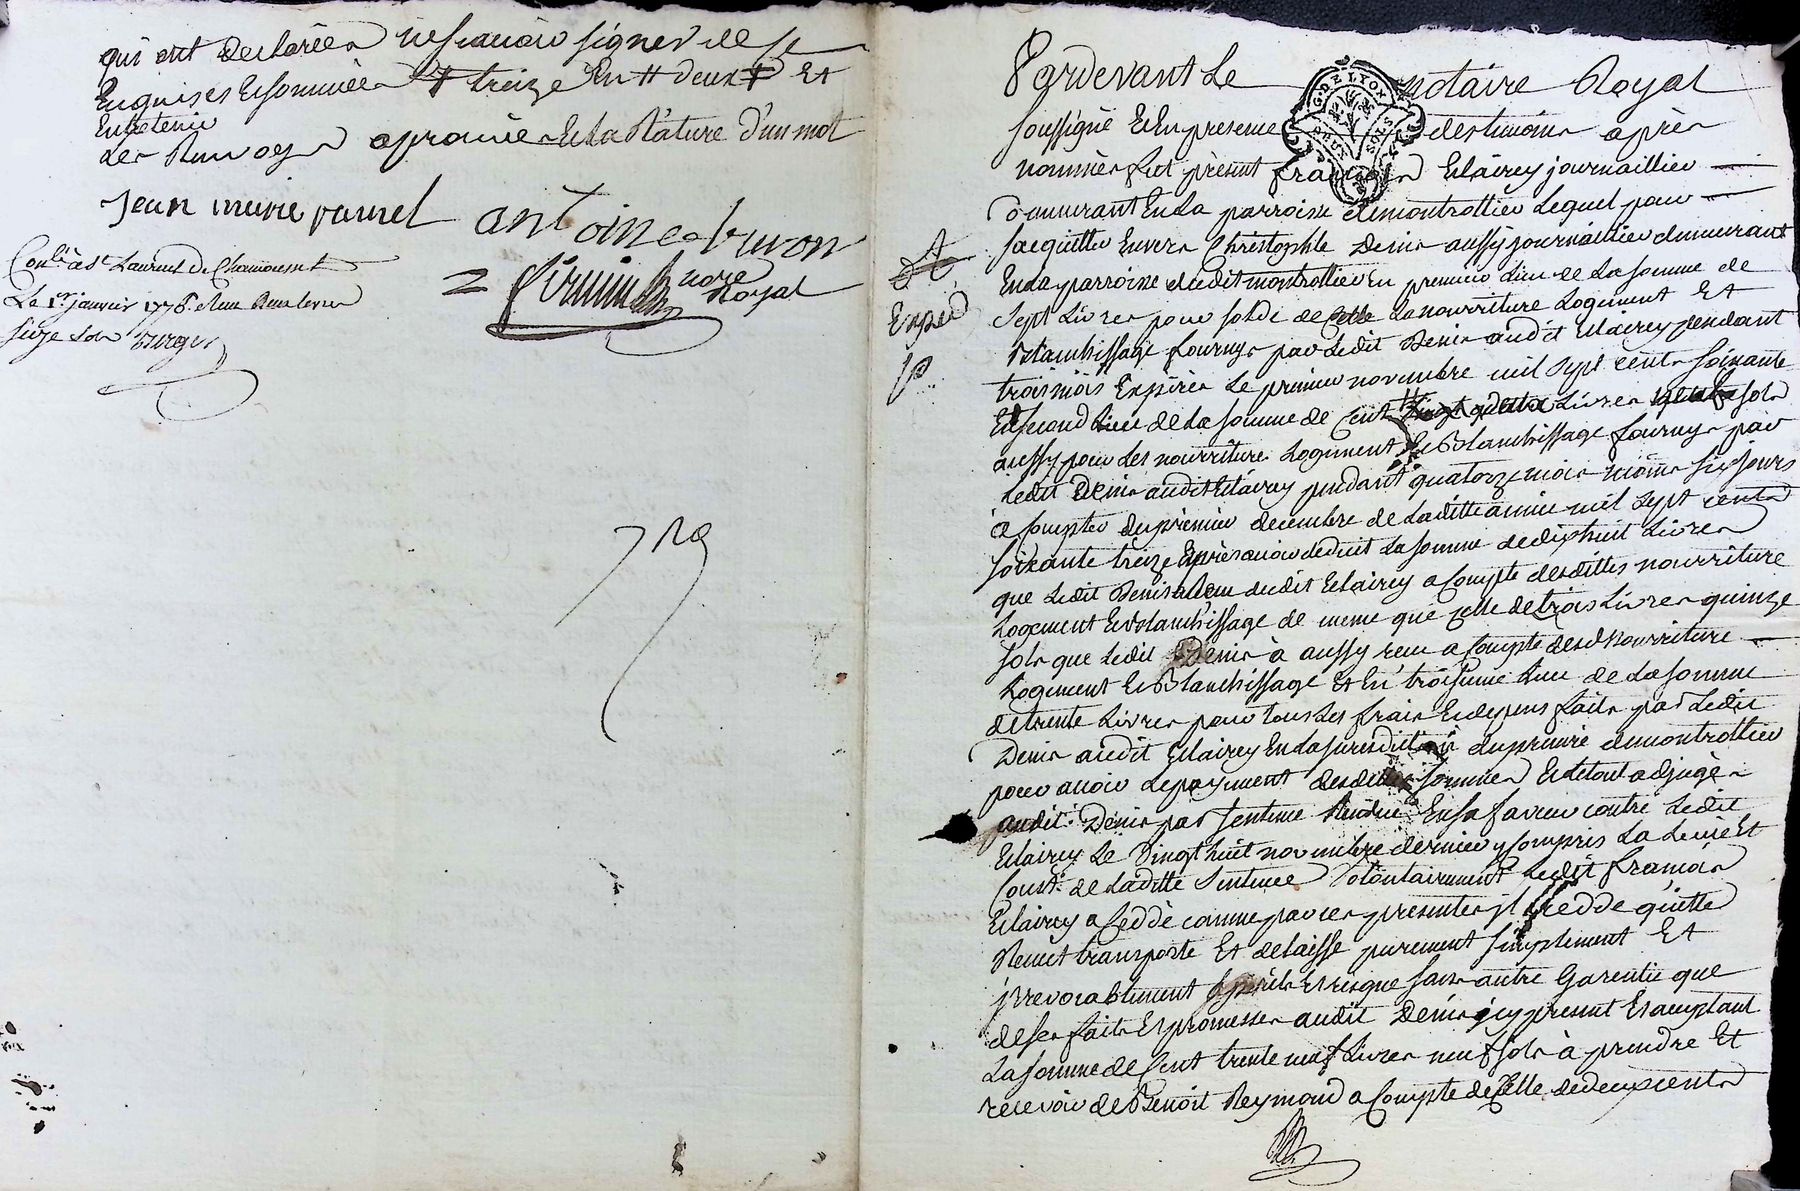 qui ont declarées ne scavoir signer de ce
Enquises Et sommées treize En deux Et
Entretenir
Les Renvoys aprouvés Et la Rature d'un mot
Jean marie
antoine
notre Royal
Conlé à St Laurent De Chamousset
Le 1er janvier 1776
seize sols
Pardevant Le notaire Royal
G. DE LYON
DEUX SOLS
soussigné Et En presence des temoins après
nommés fut présent françois Eclairey journaillier
demeurant En La parroisse de montrottier Lequel pour
sacquitter Envers Christophle Denis aussy journaillier demeurant
En La parroisse dudit montrottier En premier Lieu de La somme de
Expéd
sept Livres pour solde de Celle La nourriture Logement Et
Blanchissage fournys par Ledit Denis audit Eclairey pendant
trois mois Expirés Le premier novembre mil sept cents soixante
En second Lieu de La somme de Cent Livres sols
aussy pour Les nourriture Logement Et Blanchissage fournys par
Ledit Denis audit Eclairey pendant quatorze mois moins six jours
a Compter du premier decembre de Laditte année mil sept cents
soixante treize Après avoir deduit La somme de dixhuit Livres
que Ledit Denis a Reçu dudit Eclairey a Compte desdittes nourriture
Logement Et blanchissage de meme que celle de trois Livres quinze
sols que Ledit Denis à aussy reçu a Compte desd nourriture
Logement Et Blanchissage Et En troisieme Lieu de La somme
de trente Livres pour tous Les frais Et depens faits par Ledit
Denis audit Eclairey En La jurisdiction du prieuré de montrottier
pour avoir Le payement desdittes sommes Et le tout adjugés
audit Denis par sentence Rendue En sa faveur contre Ledit
Eclairey Le vingt huit novembre dernier y Compris La Levée Et
Coust de Laditte Sentence Volontairement Ledit françois
Eclairey a Ceddé comme par ces presentes jl cedde quitte
Remet transporte Et delaisse purement simplement Et
jrrevocablement périls Et risque sans autre Garentie que
de ses faits Et promesses audit Denis jcy present Et acceptant
La somme de Cent trente neuf Livres neuf sols à prendre Et
recevoir de Benoit Reymond a Compte de Celle de deux cents